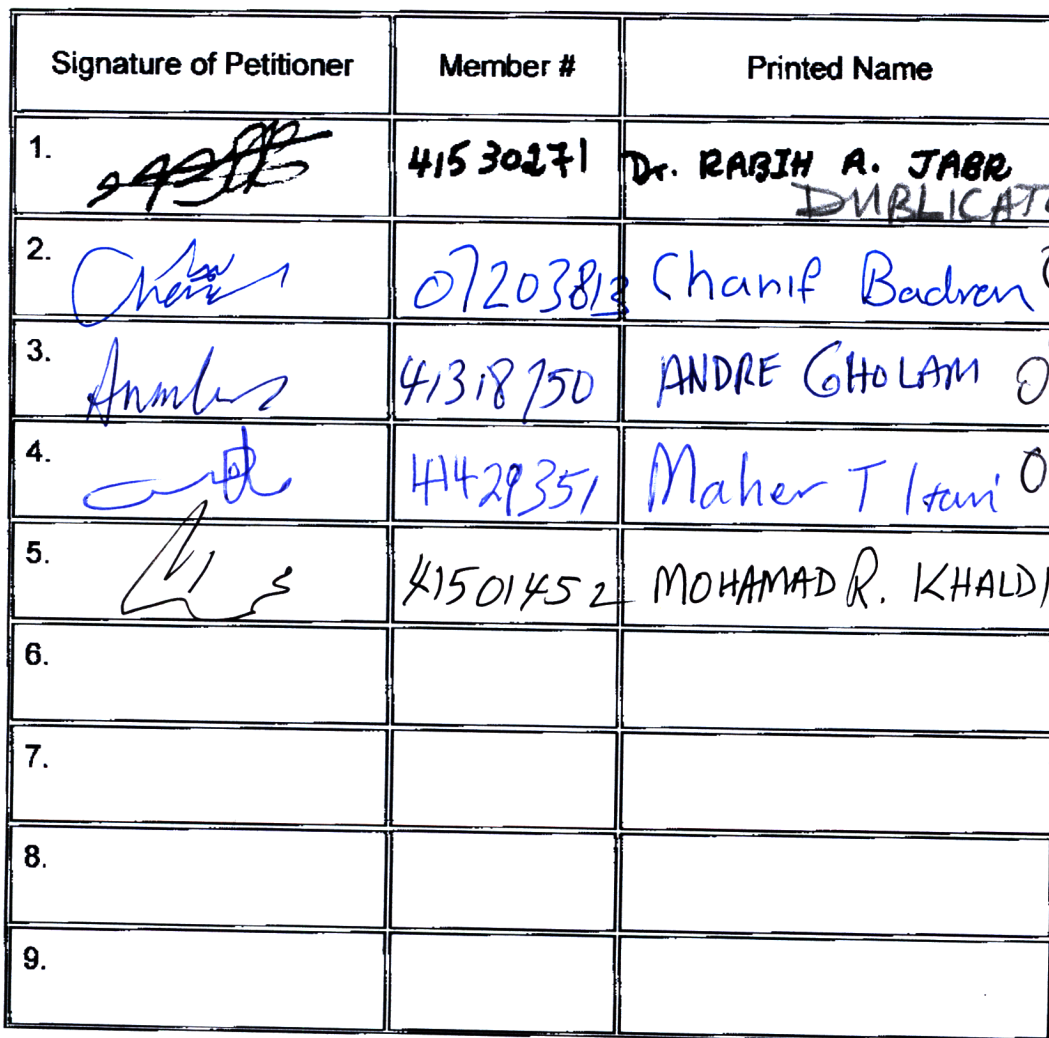 Signature of Petitioner Member # Printed Name
1. 41530271 Dr. RABIH A. JABR
DUBLICAT
2. 07203813 Chanif Badren
3. 41318750 ANDRE GHOLAM
4. 41429351 Maher T Itani
5. 41501452 MOHAMAD R. KHALDI
6.
7.
8.
9.